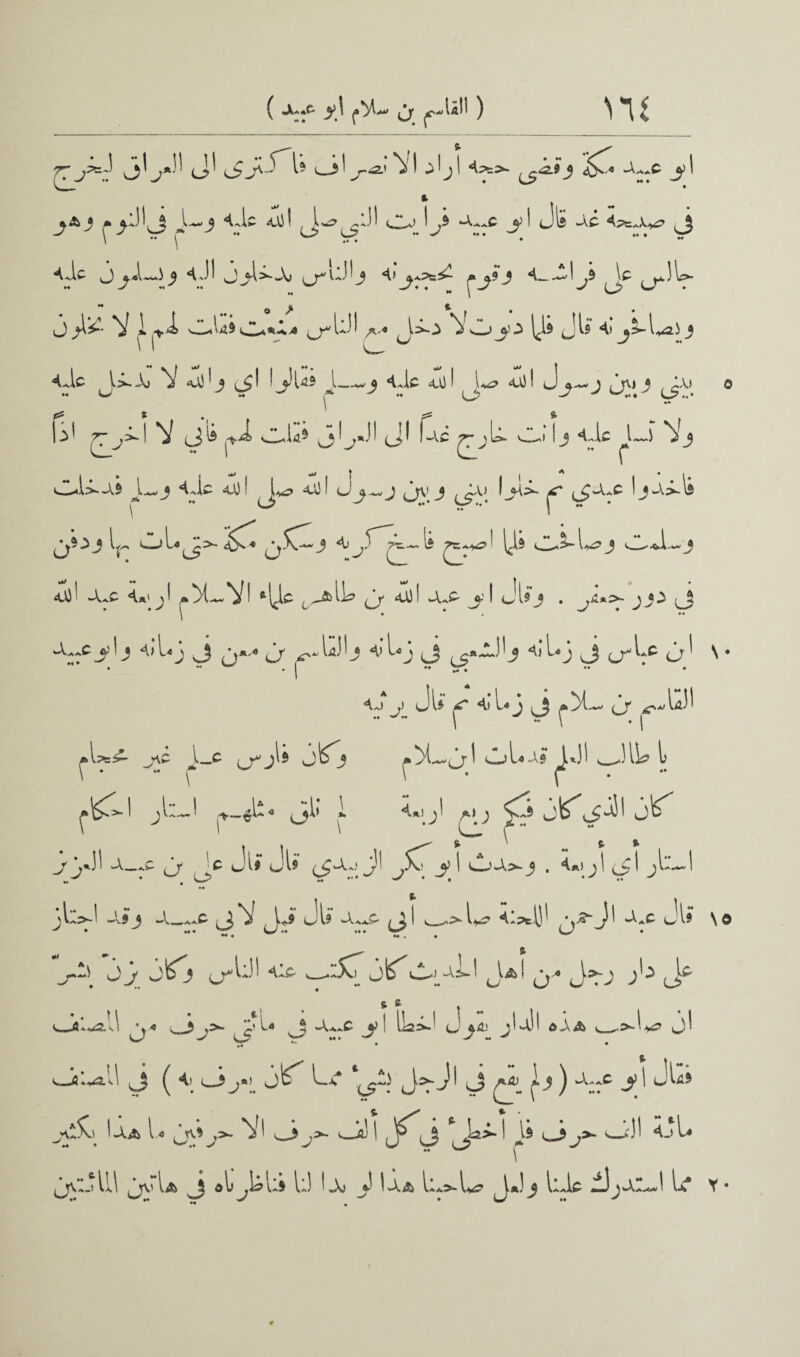 ( القاسم بن سلام ابو عبيد ) ١٦٤
ابو عبيد مكة وقضى حجه اراد الانصراف فاكترى الى العراق ليخرج
فى صبيحة غد قال ابو عبيد فرأيت النبى صلى الله عليه وسلم فى النوم وهو
جالس على فراشه وقوم يحجبونه والناس يدخلون اليه ويسلمون عليه
ويصافحونه قال فلما دنوت لادخل مع الناس منعت فقلت لهم لم لا تخلون
بينى وبين رسول الله صلى الله عليه وسلم فقالوا اى والله لا تدخل عليه ٥
ولا تسلم عليه وانت خارج غدا الى العراق فقلت لهم فانى لا اخرج اذا
فاخذوا عهدى ثم خلوا بينى وبين رسول الله صلى الله عليه وسلم فدخلت
وسلمت وصافحت فلما اصبح فاسخ كريه وسكن مكة حتى مات بها ودفن
فى دور جعفر . وقال ابو عبد الله بن طاهر علماء الاسلام اربعة عبد الله
ابن عباس فى زمانه والشعبى فى زمانه والقاسم بن معن فى زمانه وابو عبيد ١٠
القاسم بن سلام فى زمانه ثم قال يرثيه
يا طالب العلم قد مات ابن سلام وكان فارس علم غير محجام
كان الذى كان فيكم ربع اربعة لم يلق مثلهم استار احكام
استار اى اربعة . وحدث ابو بكر الزبيدى قال قال على بن عبد العزيز
قال عبد الرحمن اللحنة صاحب ابى عبيد قال قيل لابى عبيد وقد اجتاز ١٥
على دار رجل من اهل الحديث كان يكتب عنه الناس وكان يزن بشر
ان صاحب هذه الدار يقول اخطأ ابو عبيد فى مائتى حرف من المصنف
فقال ابو عبيد (ولم يقع فى الرجل بشىء مما كان يعرف به) فى المصنف
مائة الف حرف فلم اخطئ فى كل الف حرف الا حرفين ما هذا بكثير
مما استدرك علينا ولعل صاحبنا هذا لو بدا لنا فناظرناه فى هاتين المائتين ٢٠